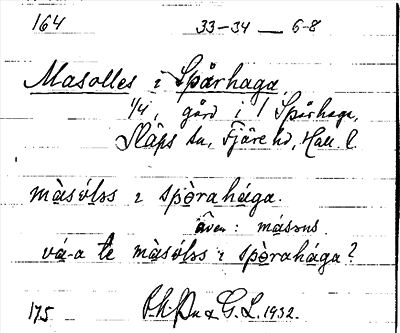 164 33-34 — 6-8
Masolles i Spårhaga
1/4, gård i 1 Spårhaga,
Släps sn, Fjäre hd, Hall. l.
màsólss ɩ spòrahága.
även: másons.
vá-a te màsólss ɩ spòrahága?
175 & G. L. 1932.